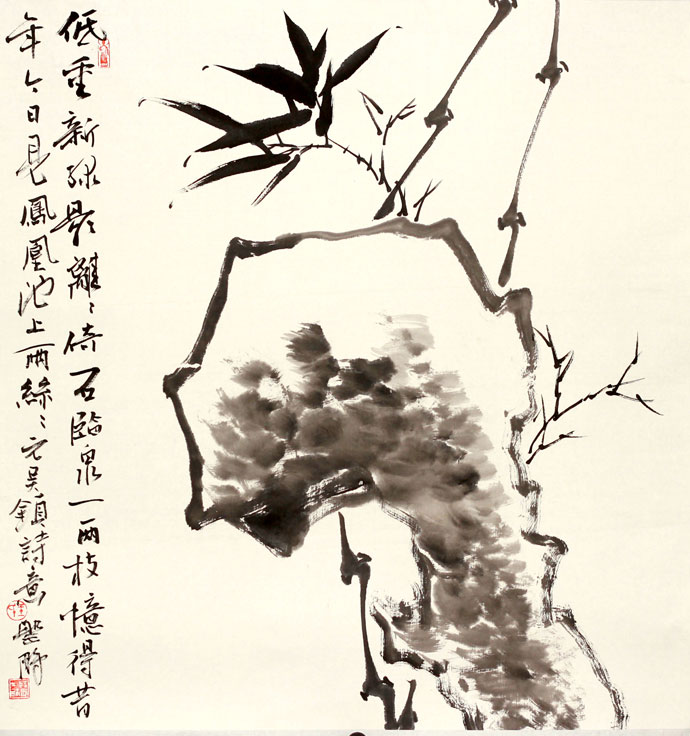 低垂新綠影離〻倚石臨泉一兩枝憶得昔
年今日見鳳凰池上雨絲〻元吳鎮詩意